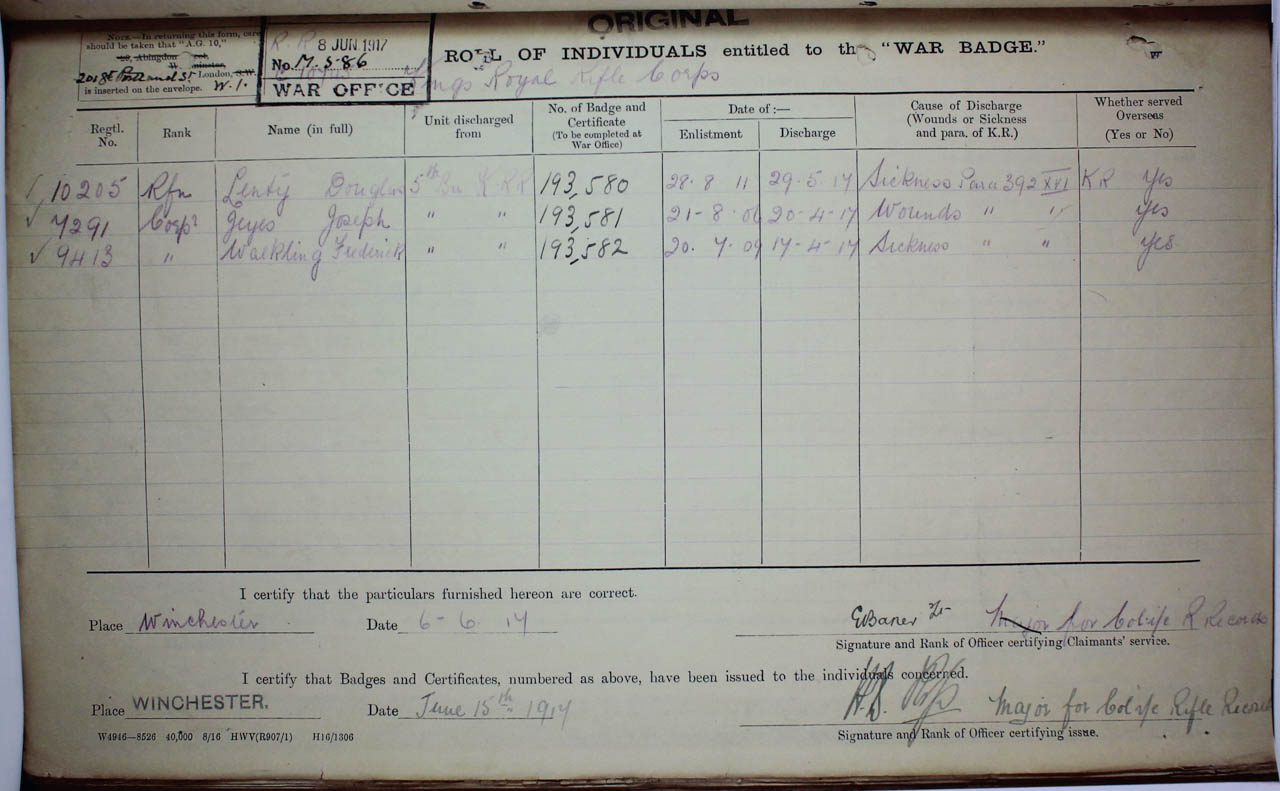 ORIGINAL
NOTE.—In returning this form, care
should be taken that "A.G. 10,"
London, S.W.
W.1.
is inserted on the envelope.
R.R 8 JUN 1917
No. M.S-86
WAR OFFICE
ROLL OF INDIVIDUALS entitled to the "WAR BADGE."
Kings Royal Rifle Corps
Regtl. No. Rank Name (in full) Unit discharged from No. of Badge and Certificate (To be completed at War Office) Date of:— Enlistment Discharge Cause of Discharge (Wounds or Sickness and para. of K.R.) Whether served Overseas (Yes or No)
10205 Rfn Lenty Douglas 5th Bn K.R.R 193,580 28·8 11 29·5·17 Sickness Para 392 XVI KR Yes
7291 Corpl Jeyes Joseph " " 193,581 21-8·06 20-4-17 Wounds " " Yes
9413 " Waekling Frederick " " 193,582 20·7·09 17-4-17 Sickness " " Yes
I certify that the particulars furnished hereon are correct.
Place Winchester Date 6-6.17 Major for Col i/c R Records
Signature and Rank of Officer certifying Claimants' service.
I certify that Badges and Certificates, numbered as above, have been issued to the individuals concerned.
Place WINCHESTER. Date June 15th 1917 Major for Col i/c Rifle Records
Signature and Rank of Officer certifying issue.
W4946—8526 40,000 8/16 HWV(R907/1) H16/1306